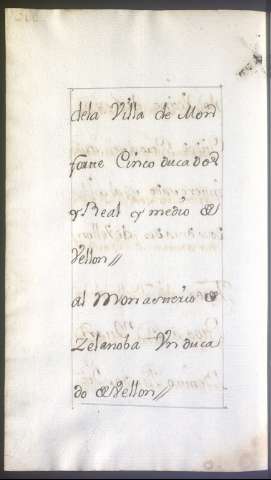 dela Villa de Mon
forte Cinco ducados
y Real y medio de
Vellon//
al Monasterio de
Zelanoba Un duca
do de Vellon//